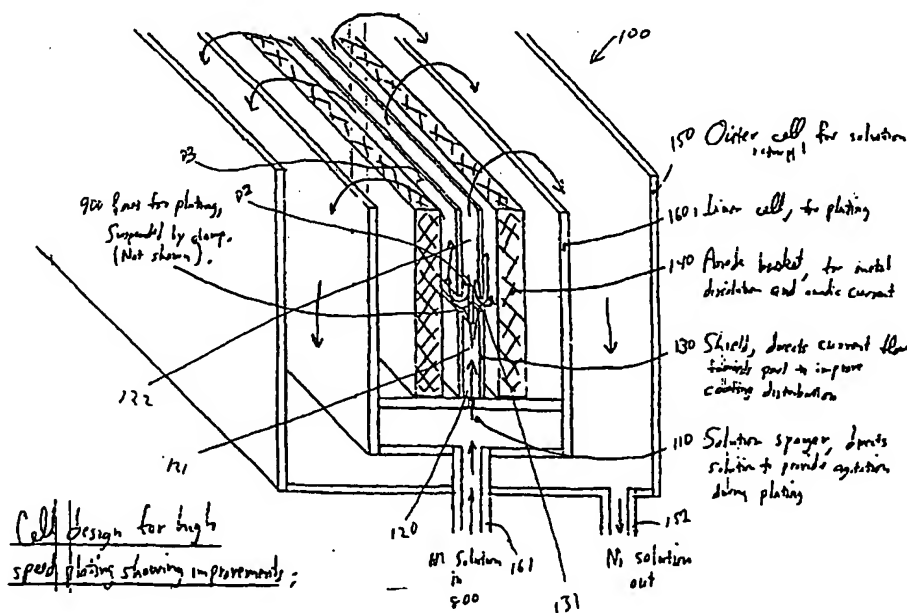 100
150 Outer cell for solution
return
160, Inner cell, for plating
140 Anode basket, for metal
dissolution and anodic current
130 Shield, directs current flow
towards part to improve
coating distribution
110 Solution sparger, directs
solution to provide agitation
during plating
900 for plating,
Suspended by clamp.
(Not shown).
122
121
120
Ni Solution
in
800
161
131
Ni solution
out
152
Cell design for high
speed plating showing improvements: